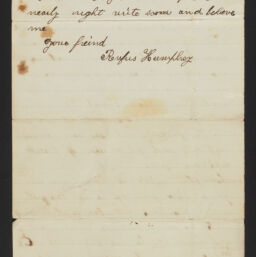 nearly night write soon and beleve
me
your freind
Rufus Humphrey